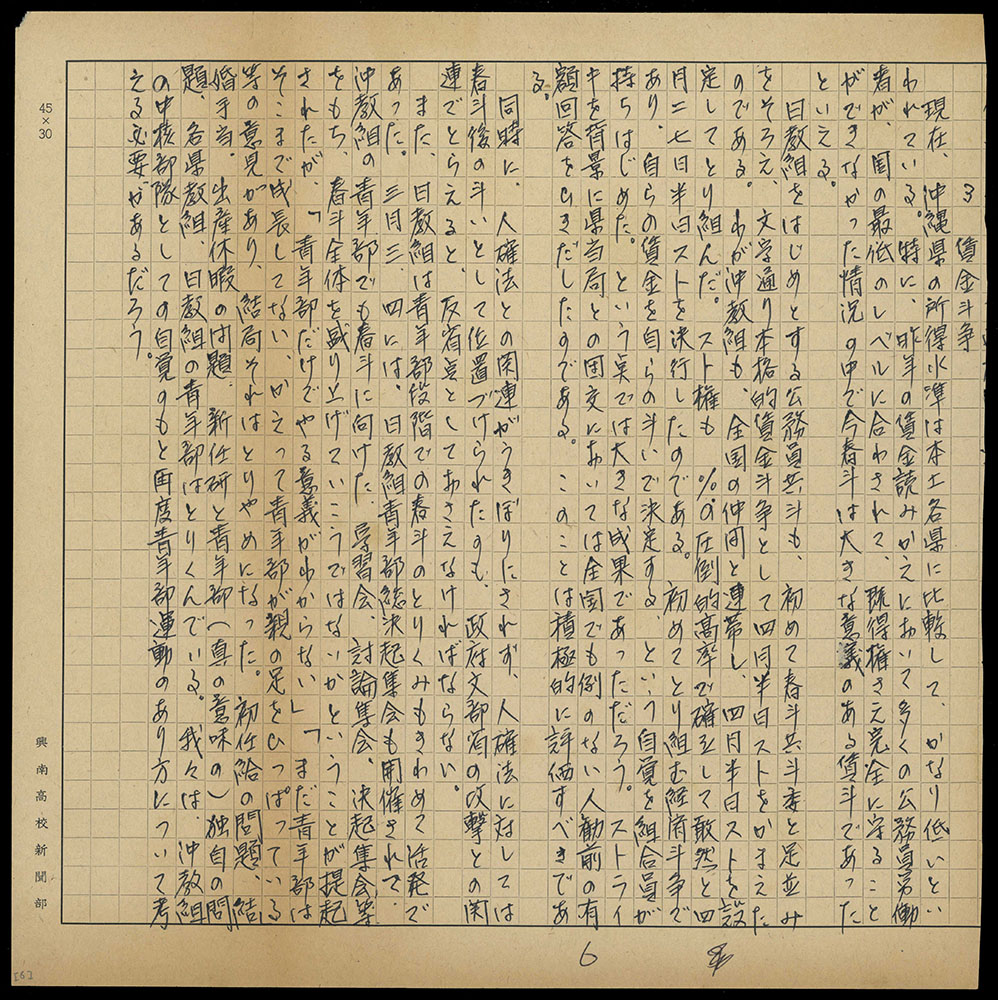 3 賃金斗争
現在、沖縄県の所得水準は本土各県に比較して、かなり低いとい
われている。特に、昨年の賃金読みかえにおいて多くの公務員労働
者が、国の最低のレベルに合わされて、既得権さえ完全に守ること
ができなかった情況の中で今春斗は大きな意義のある賃斗であった
といえる。
日教組をはじめとする公務員共斗も、初めて春斗共斗委と足並み
をそろえ、文字通り本格的賃金斗争として四月半日ストをかまえた
のである。わが沖教組も、全国の仲間と連帯し、四月半日ストを設
定してとり組んだ。スト権も %の圧倒的高率で確立して敢然と四
月二七日半日ストを決行したのである。初めてとり組む経済斗争で
あり、自らの賃金を自らの斗いで決定する、という自覚を組合員が
持ちはじめた。という点では大きな成果であっただろう。ストライ
キを背景に県当局との団交においては全国でも例のない人勧前の有
額回答をひきだしたのである。このことは積極的に評価すべきであ
る。
同時に、人確法との関連がうきぼりにされず、人確法に対しては
春斗後の斗いとして位置づけられたのも、政府文部省の攻撃との関
連でとらえると、反省点としておさえなければならない。
また、日教組は青年部段階での春斗のとりくみもきわめて活発で
あった。三月三、四には、日教組青年部総決起集会も開催されて、
沖教組の青年部でも春斗に向けた、学習会、討論集会、決起集会等
をもち、春斗全体を盛り上げていこうではないかということが提起
されたが、「青年部だけでやる意義がわからない」「まだ青年部は
そこまで成長してない、かえって青年部が親の足をひっぱっている
等の意見があり、結局それはとりやめになった。初任給の問題、結
婚手当。出産休暇の問題、新任研と青年部（真の意味の）独自の問
題、各県教組、日教組の青年部はとりくんでいる。我々は、沖教組
の中核部隊としての自覚のもと再度青年部運動のあり方について考
える必要があるだろう。
45×30
興南高校新聞部
6
[6]